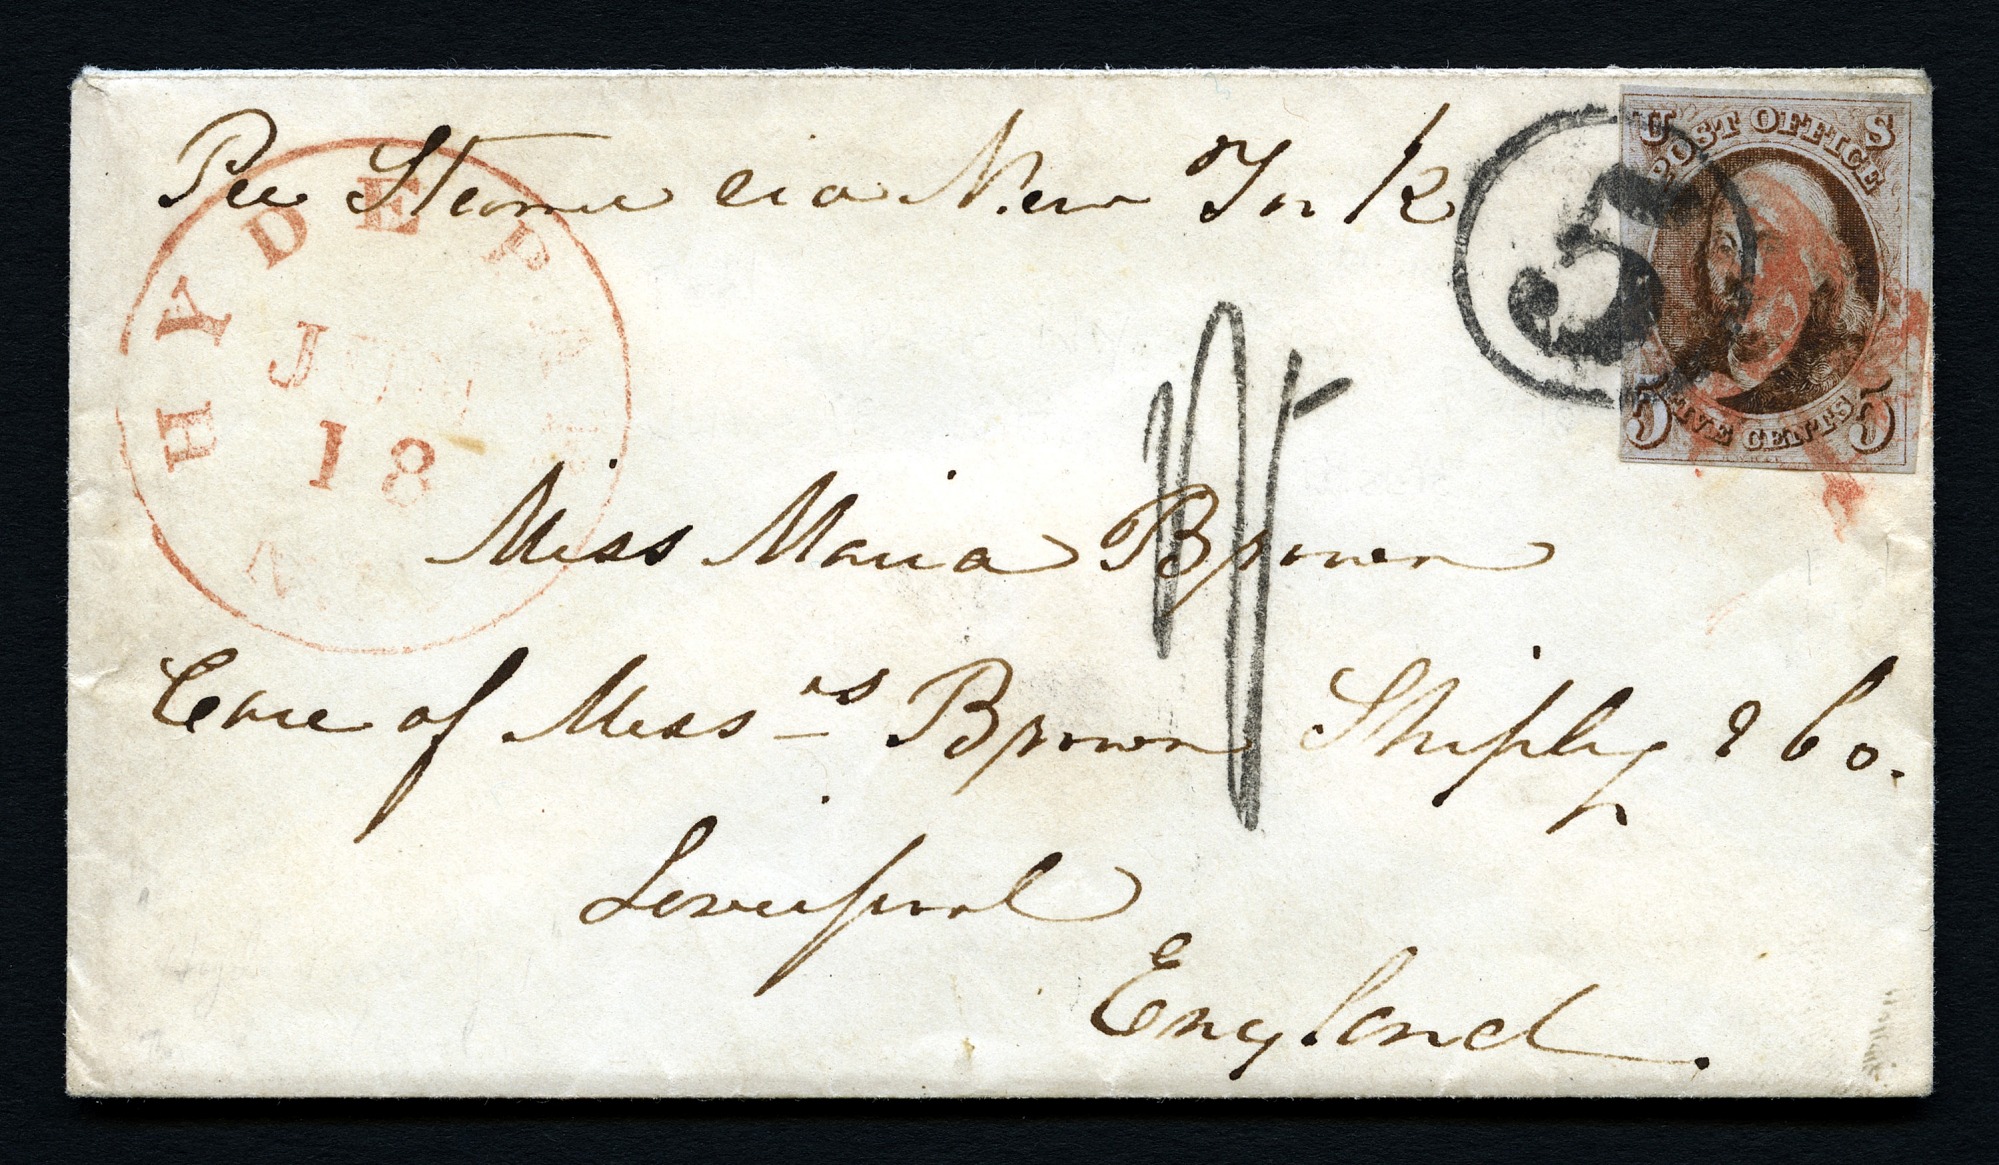 Per Steamer via New York
HYDE P
JUL
18
N.Y.
5
U S
POST OFFICE
5 FIVE CENTS 5
Miss Maria Brown
Care of Mess-rs Brown Shipley & Co.
Liverpool
England.